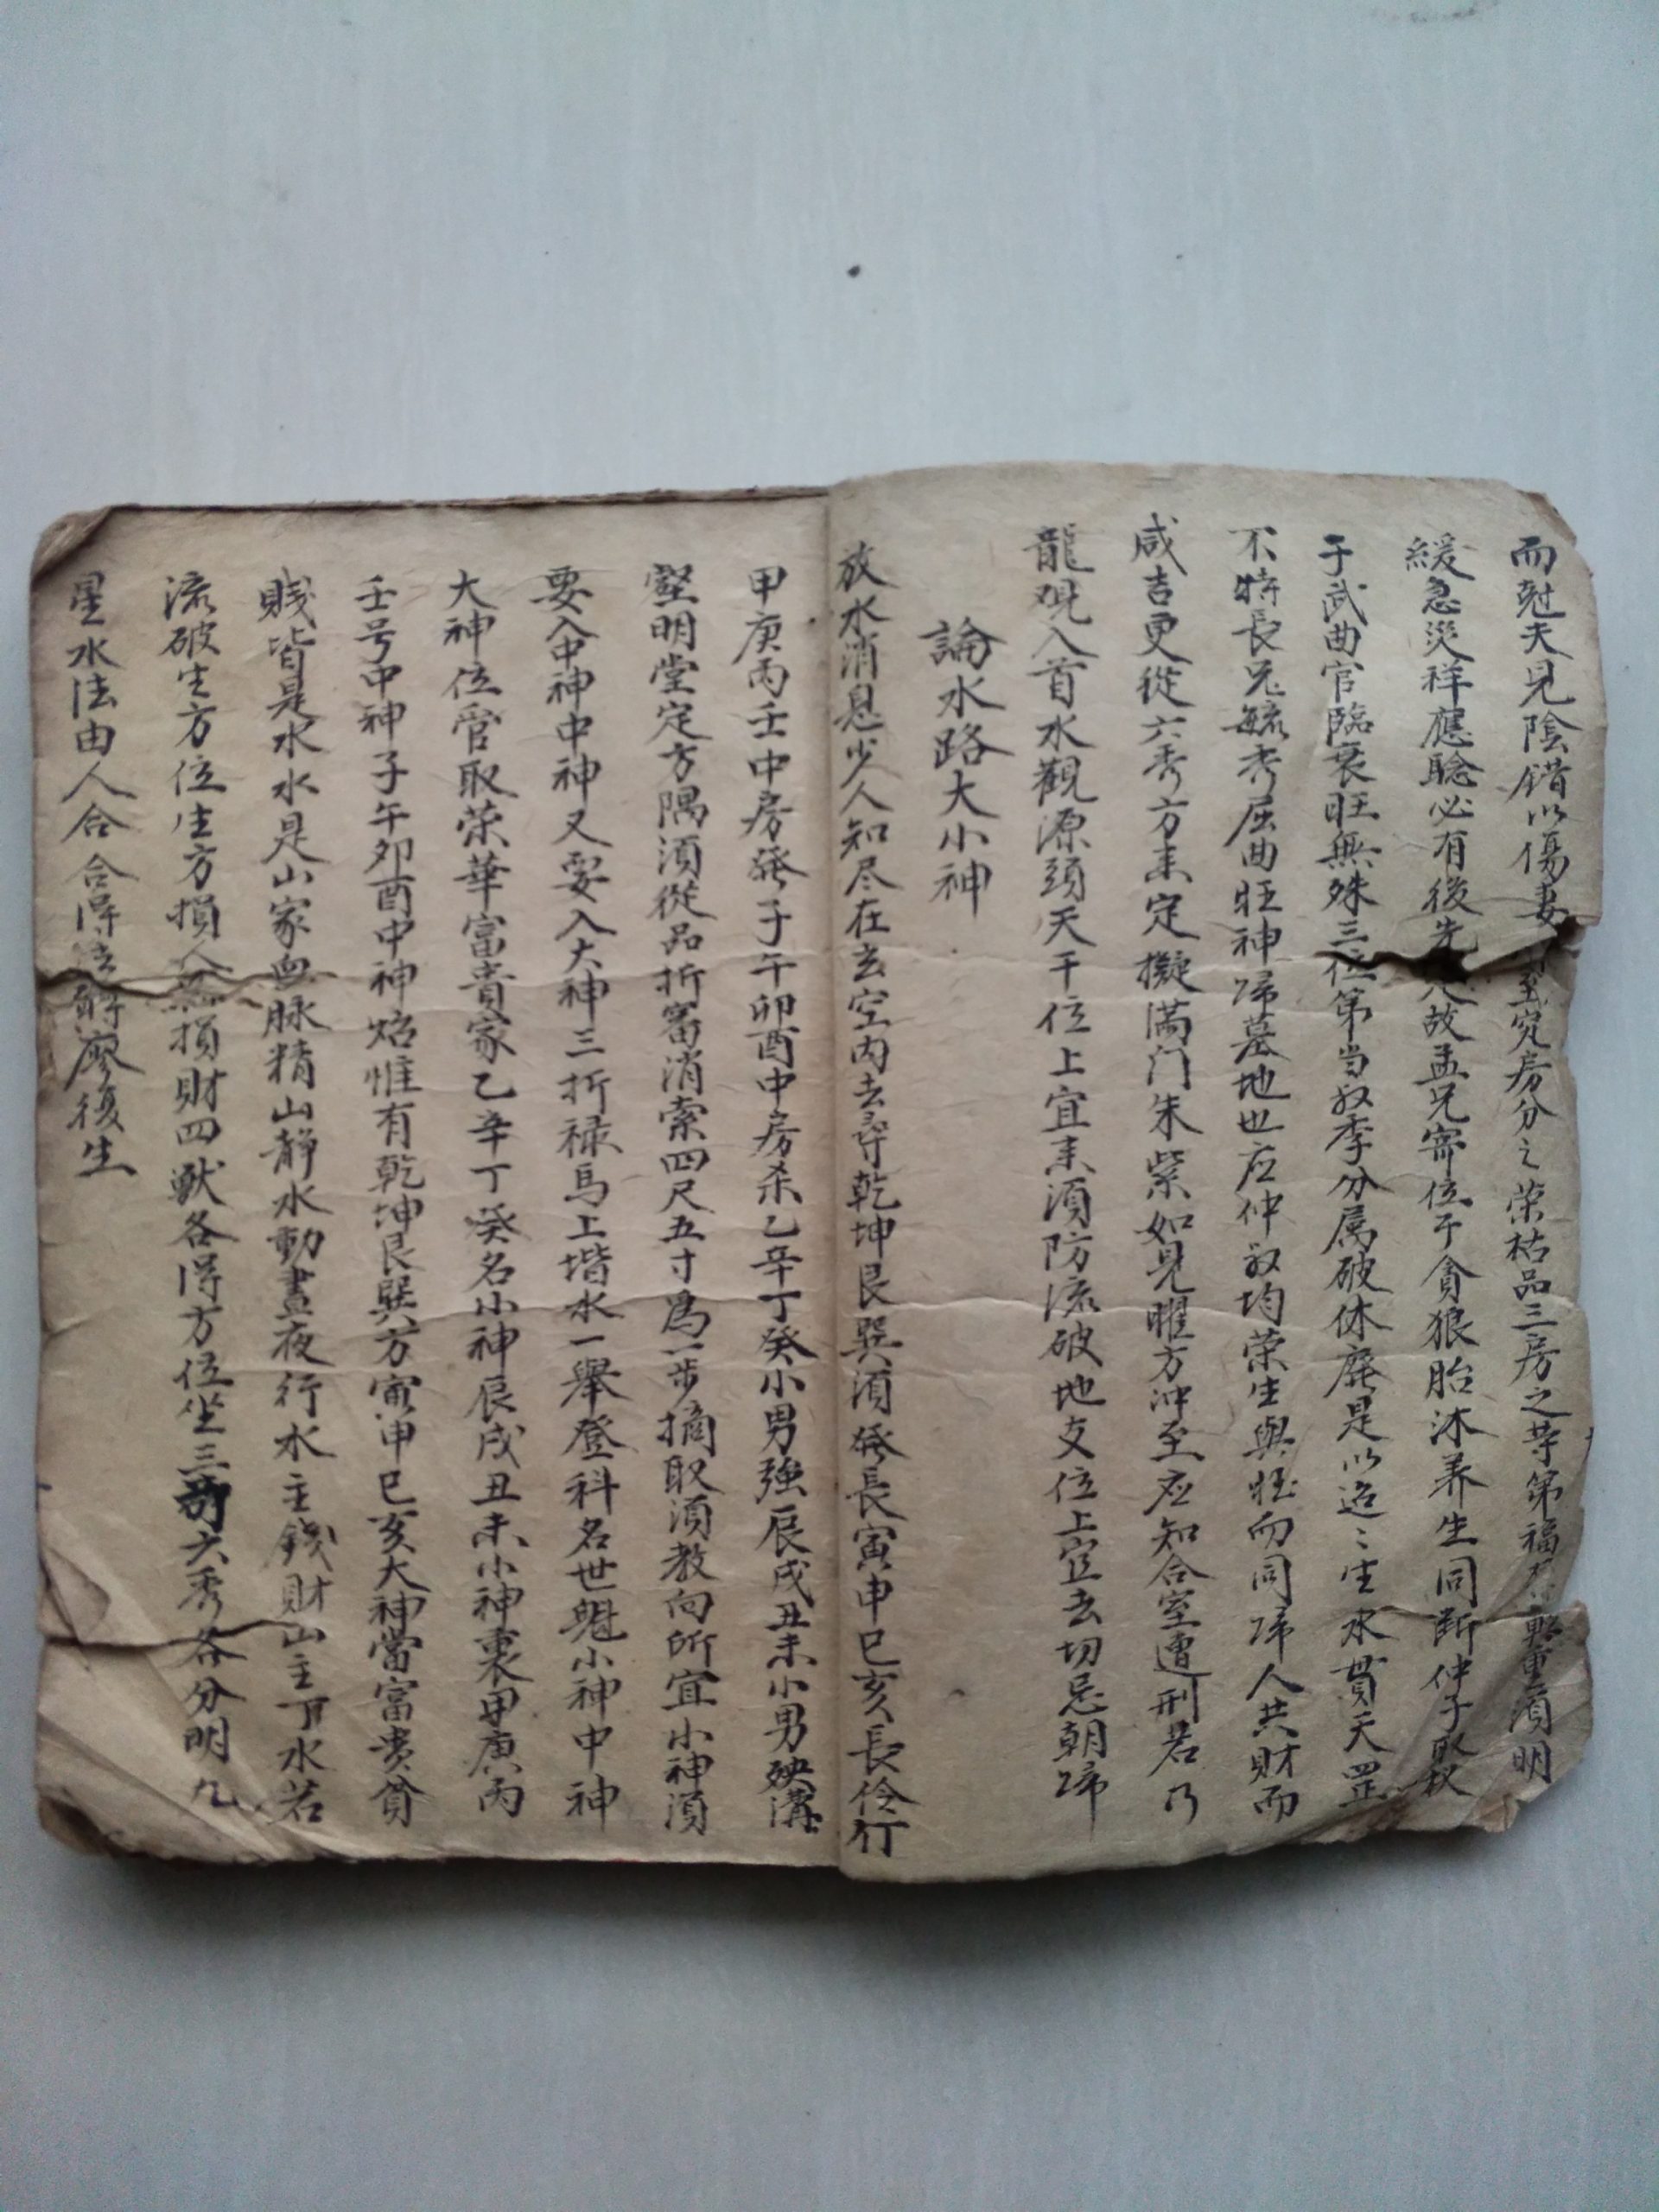 而尅夫見陰錯以傷妻至究房分之荣枯品三房之等第福須明
緩急災祥應驗必有後先故孟兄寄位于貪狼胎沐养生同断仲子取权
于武曲官臨衰旺無殊三位第当叔季分属破休廃是以迢〻生水貫天罡
不特長兄毓秀屈曲旺神歸墓地也应仲叔均荣生與旺而同歸人共財而
咸吉更從六秀方来定擬满门朱紫如見曜方冲至应知合室遭刑若乃
龍观入首水觀源頭天干位上宜来須防流破地支位上宜去切忌朝歸
論水路大小神
放水消息少人知尽在玄空内去尋乾坤艮巽須發長寅申巳亥長伶仃
甲庚丙壬中房發子午卯酉中房杀乙辛丁癸小男強辰戌丑未小男殃溝
壑明堂定方隅須從品折審消索四尺五寸為一步摘取須教向所宜小神須
要入中神中神又要入大神三折禄馬上堦水一舉登科名世魁小神中神
大神位管取荣華富貴家乙辛丁癸名小神辰戌丑未小神裏甲庚丙
壬号中神子午卯酉中神焰惟有乾坤艮巽方寅申巳亥大神當富贵貧
賎皆是水水是山家血脉精山静水動晝夜行水主錢財山主丁水若
流破生方位生方損人丁損財四獣各得方位坐三六秀各分明九
星水法由人合合得廖復生